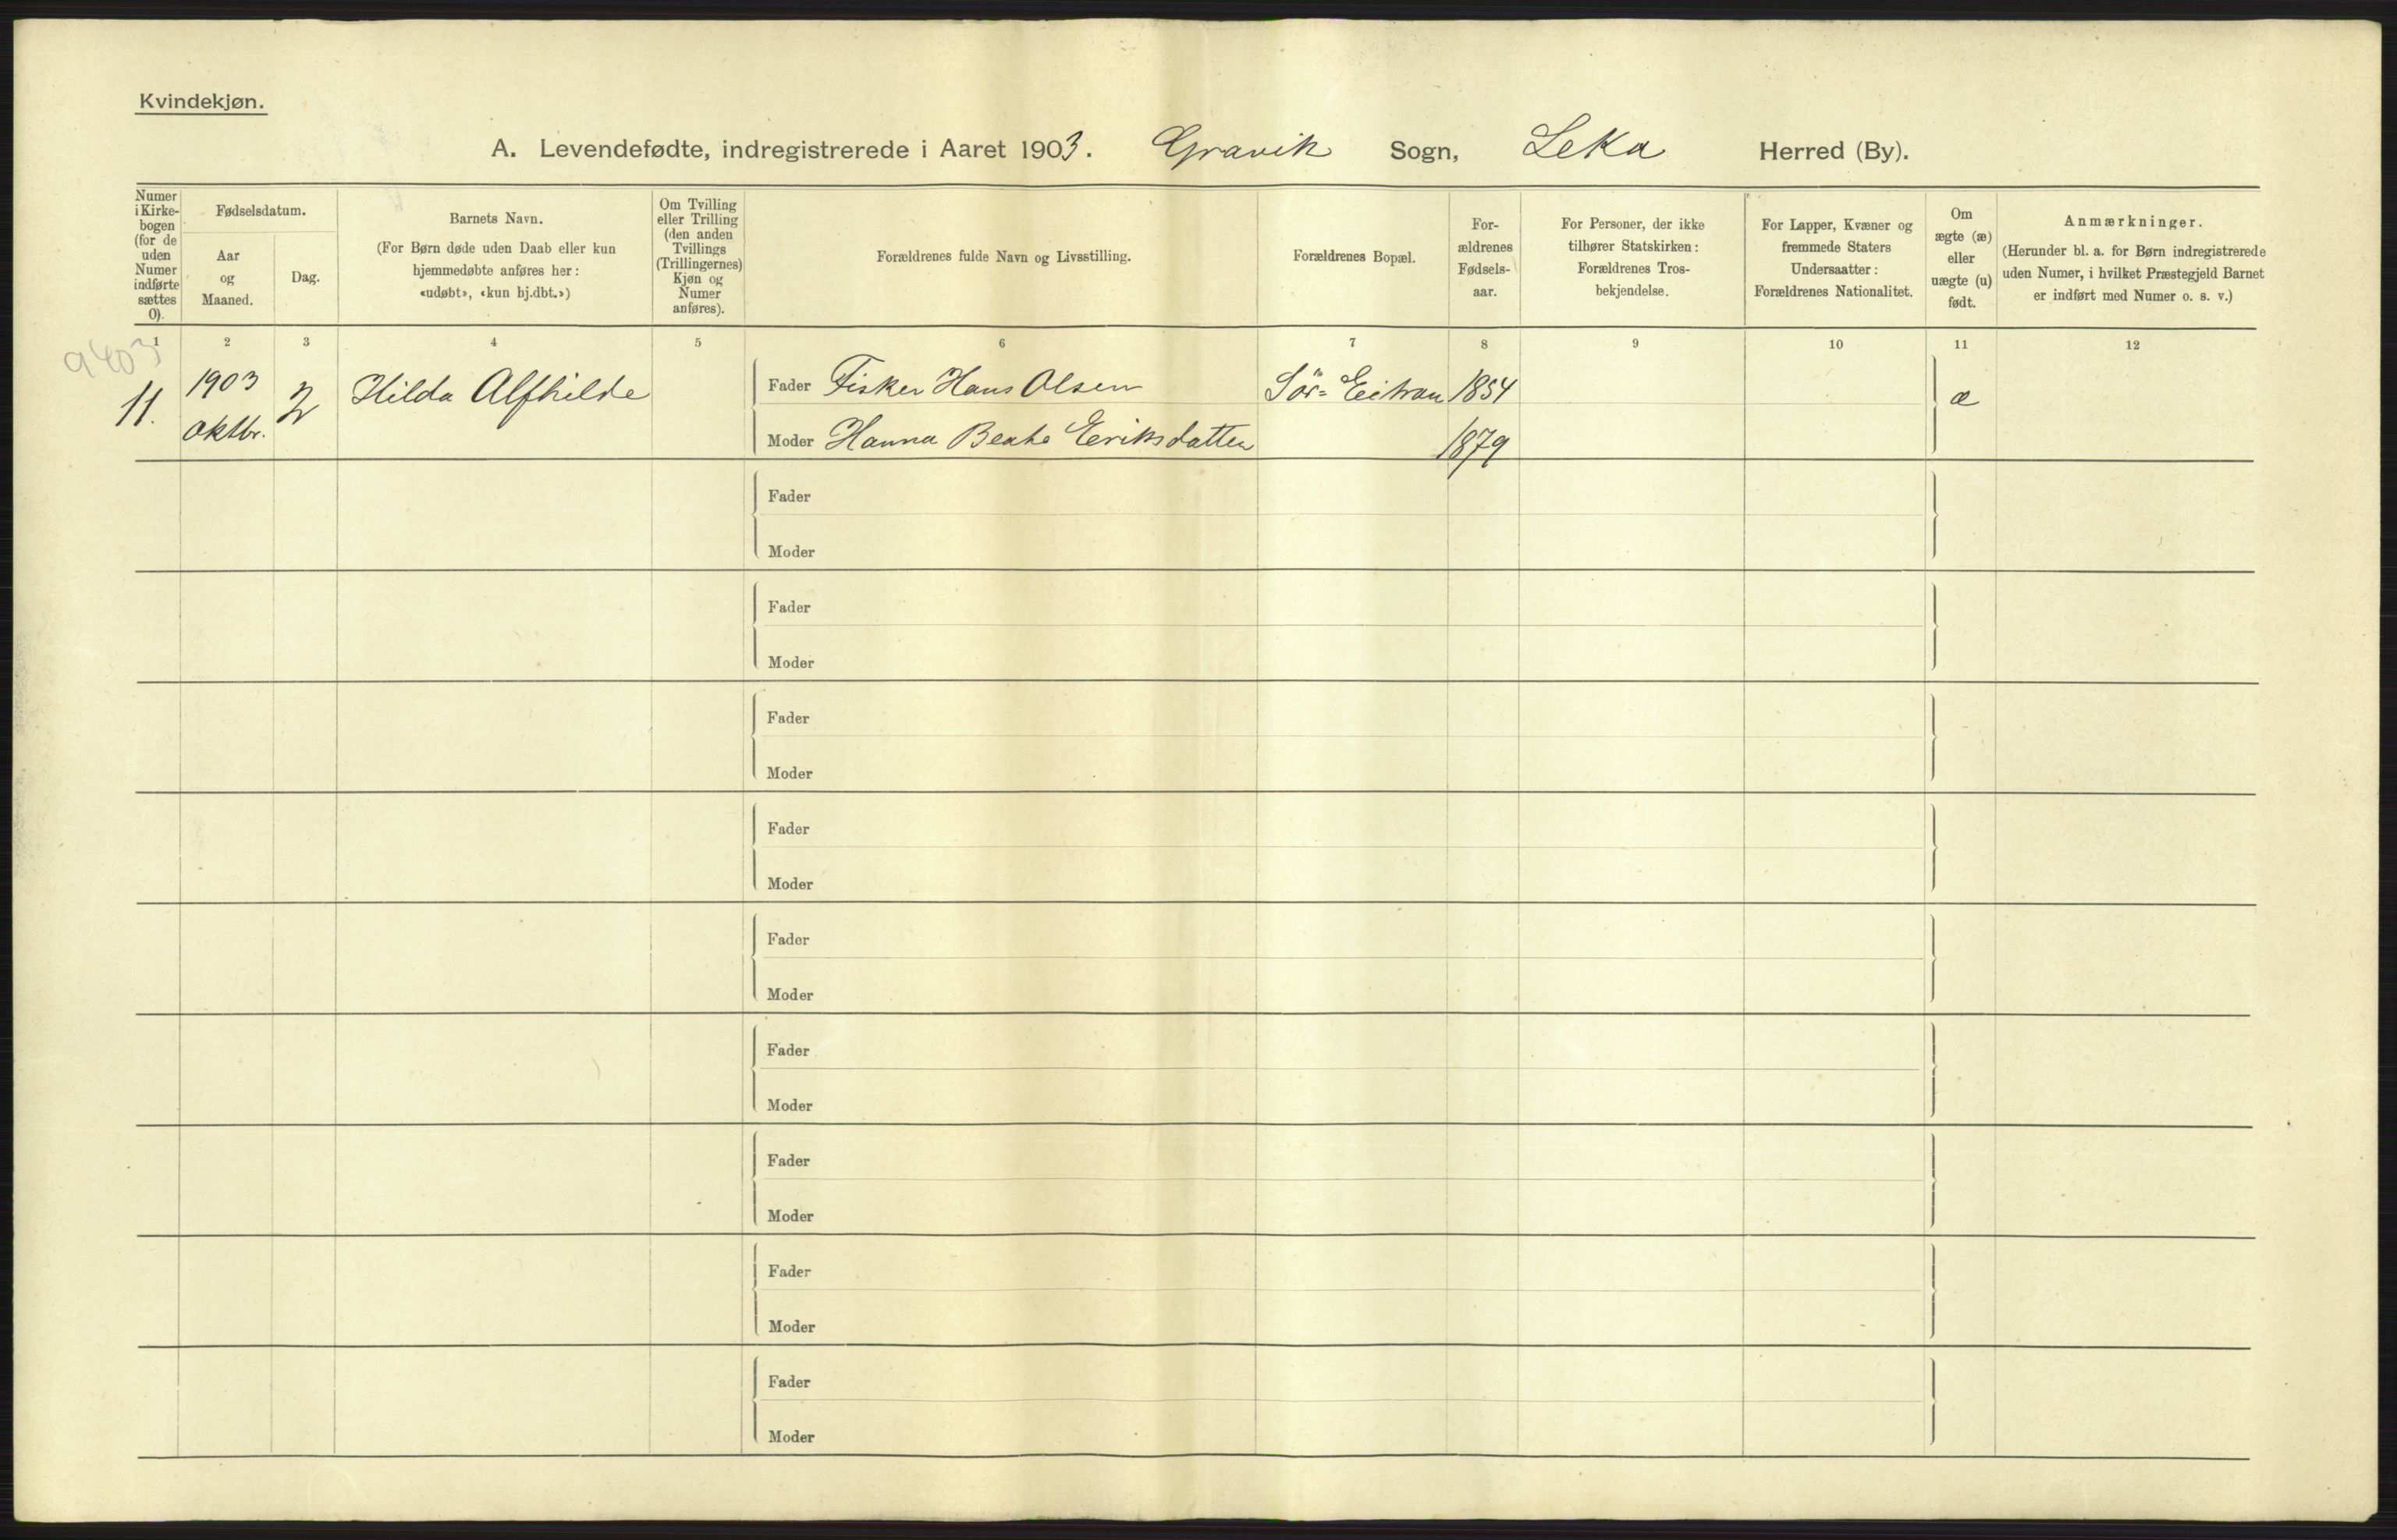 Kvindekjøn.
A. Levendefødte, indregistrerede i Aaret 1903. Gravik Sogn, Leka Herred (By).
Numer i Kirkebogen (for de uden Numer indførte sættes 0).
Fødselsdatum.
Aar og Maaned.
Dag.
Barnets Navn.
(For Børn døde uden Daab eller kun hjemmedøbte anføres her: «udøbt», «kun hj.dbt.»)
Om Tvilling eller Trilling (den anden Tvillings (Trillingernes) Kjøn og Numer anføres).
Forældrenes fulde Navn og Livsstilling.
Forældrenes Bopæl.
Forældrenes Fødselsaar.
For Personer, der ikke tilhører Statskirken: Forældrenes Trosbekjendelse.
For Lapper, Kvæner og fremmede Staters Undersaatter: Forældrenes Nationalitet.
Om ægte (æ) eller uægte (u) født.
Anmærkninger.
(Herunder bl. a. for Børn indregistrerede uden Numer, i hvilket Præstegjeld Barnet er indført med Numer o. s. v.)
1 2 3 4 5 6 7 8 9 10 11 12
9403
11. 1903 oktbr. 2 Hilda Alfhilde
Fader Fisker Hans Olsen Sör- 1854 æ
Moder Hanna Beate Eeriksdatter 1879
Fader
Moder
Fader
Moder
Fader
Moder
Fader
Moder
Fader
Moder
Fader
Moder
Fader
Moder
Fader
Moder
Fader
Moder